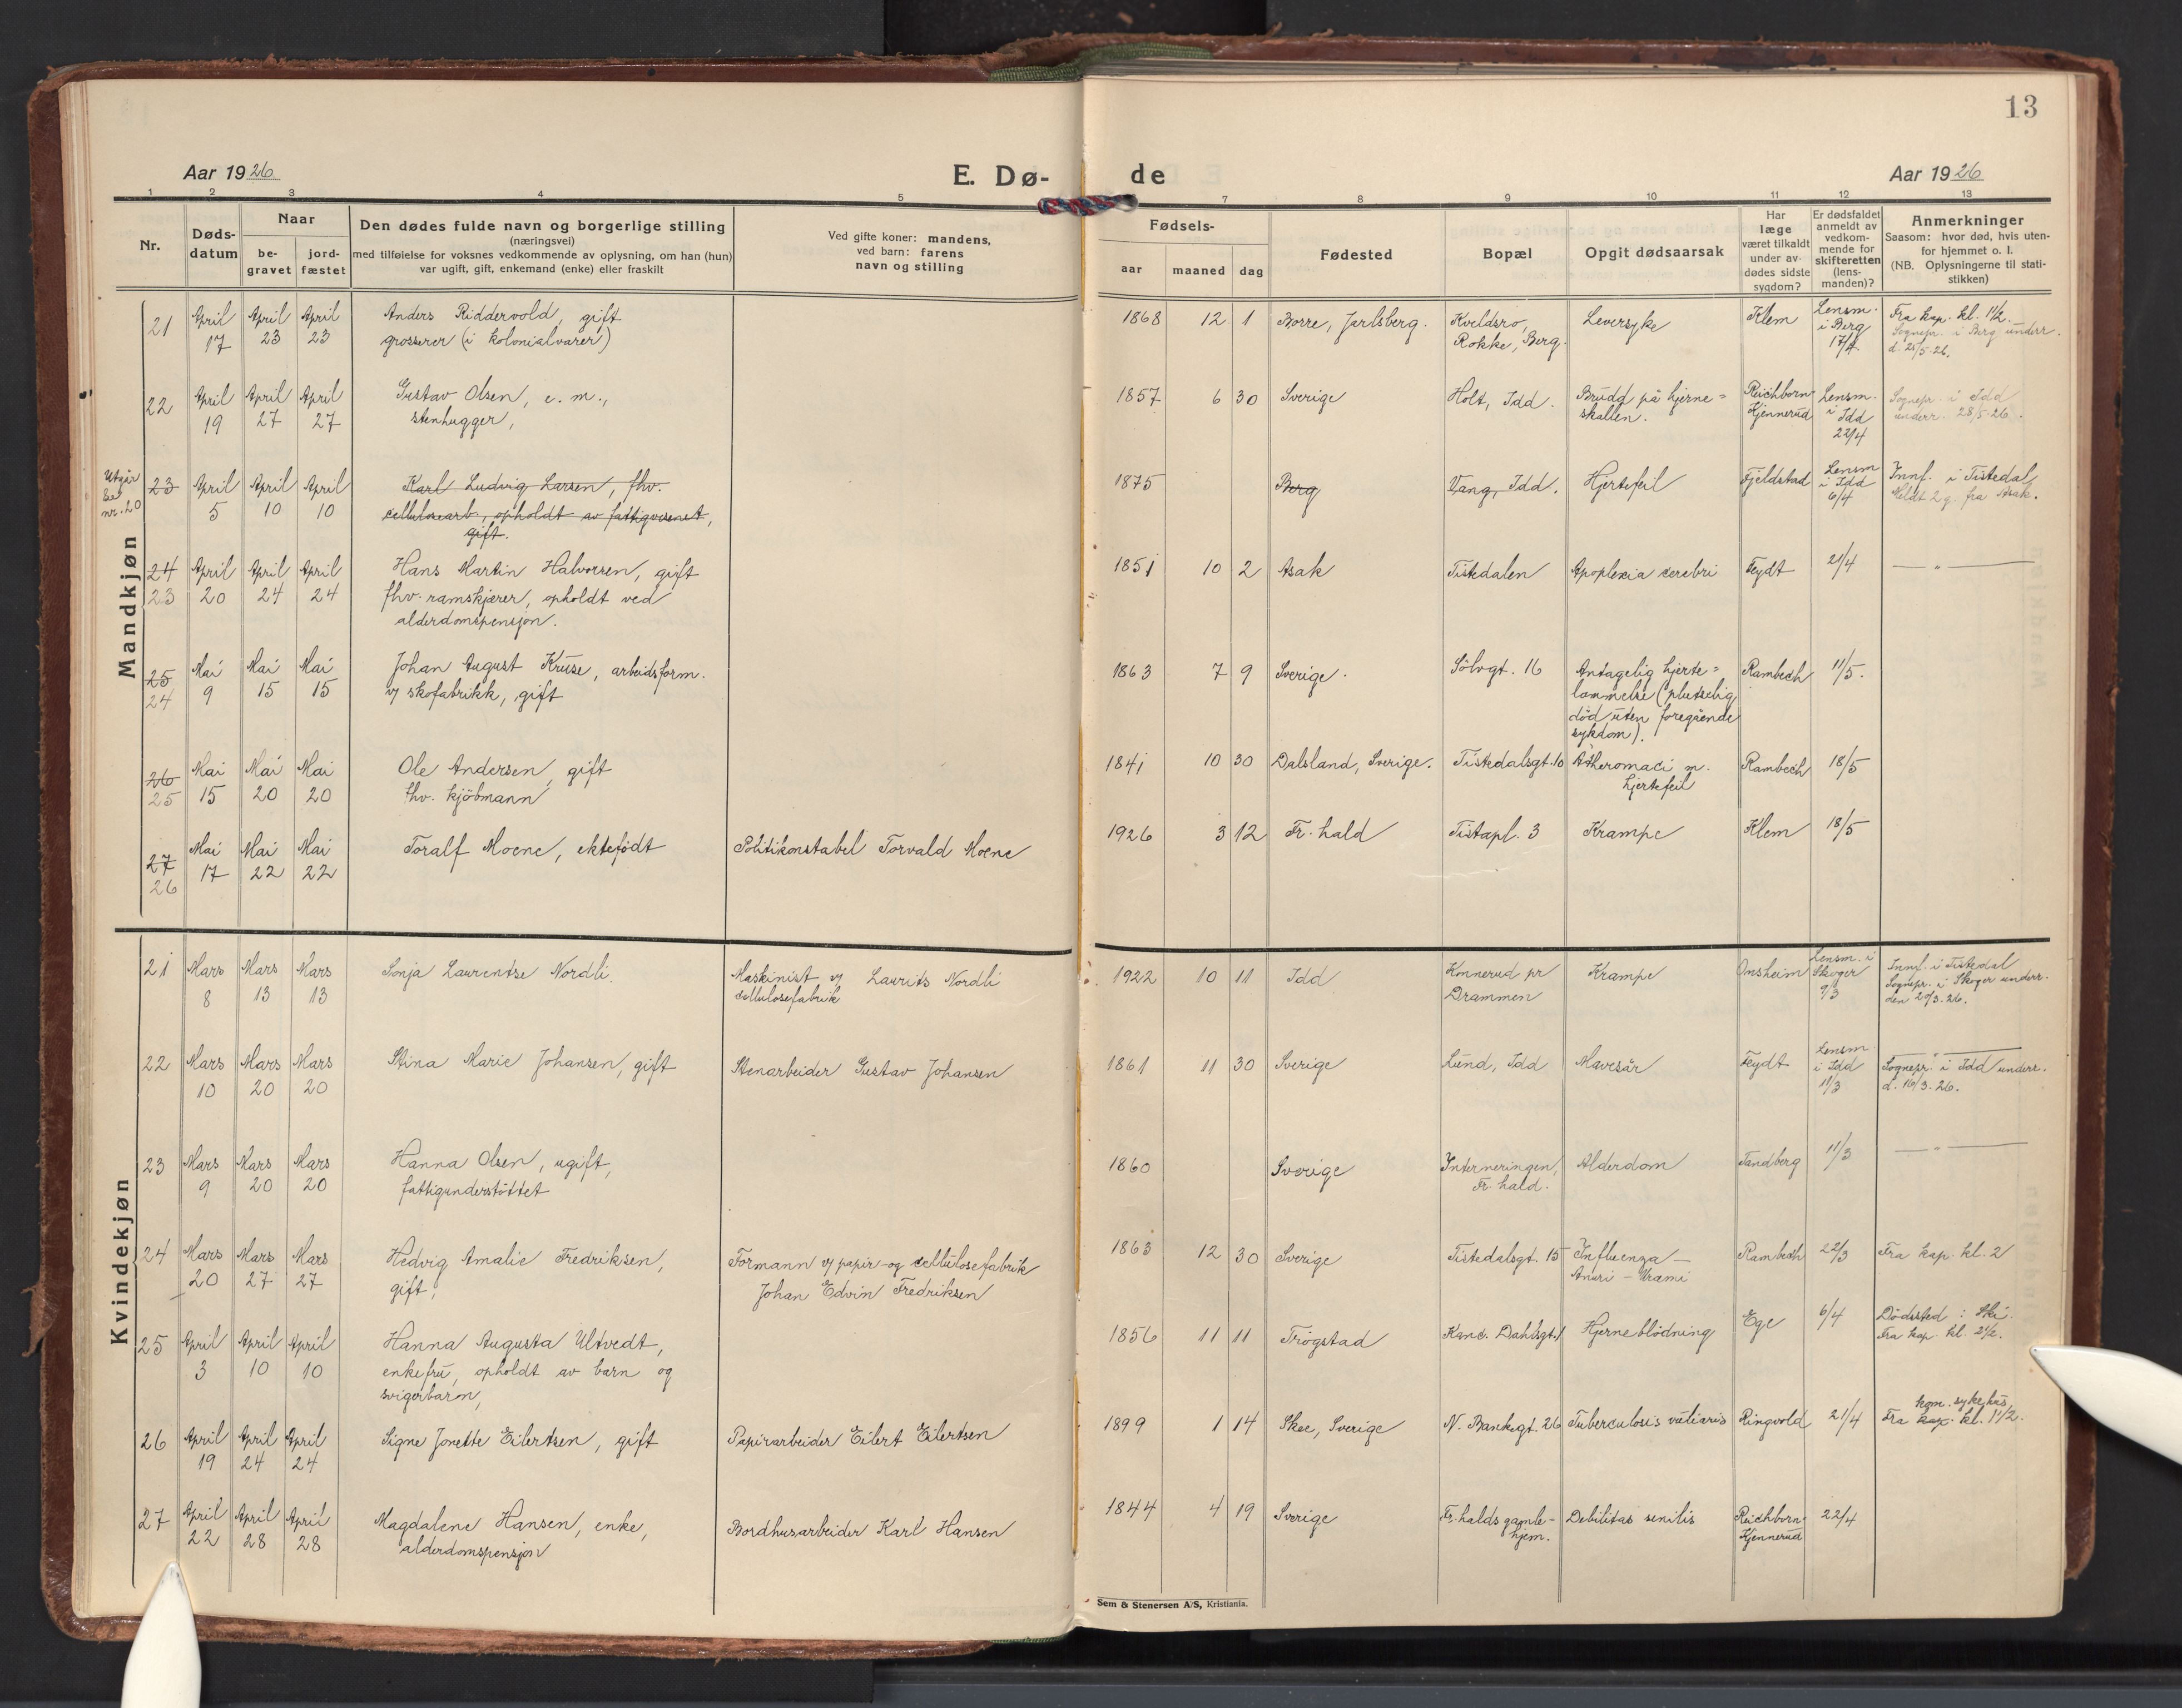 13
Aar 1926 E. Dø- de Aar 1926
1 2 3 4 5 7 8 9 10 11 12 13
Nr.
Døds-
datum
Naar
be-
gravet
jord-
fæstet
Den dødes fulde navn og borgerlige stilling
(næringsvei)
med tilføielse for voksnes vedkommende av oplysning, om han (hun)
var ugift, gift, enkemand (enke) eller fraskilt
Ved gifte koner: mandens,
ved barn: farens
navn og stilling
Fødsels-
aar maaned dag
Fødested
Bopæl
Opgit dødsaarsak
Har
læge
været tilkaldt
under av-
dødes sidste
sygdom?
Er dødsfaldet
anmeldt av
vedkom-
mende for
skifteretten
(lens-
manden)?
Anmerkninger
Saasom: hvor død, hvis uten-
for hjemmet o. l.
(NB. Oplysningerne til stati-
stikken)
Mandkjøn
21
April
17
April
23
April
23
Anders Riddervold, gift
grosserer (i kolonialvarer)
1868 12 1
Borre, Jarlsberg.
Kveldsro,
Rokke, Berg.
Leversyke
Klem
Lensm.
i Berg
17/4
Fra kap. kl. 11/2.
Sognepr. i Berg underr.
d. 25/5-26.
22
April
19
April
27
April
27
Gustav Olsen, e. m.,
stenhugger,
1857 6 30
Sverige
Holt, Idd.
Brudd på hjerne=
skallen.
Reichborn-
Kjennerud
Lensm.
i Idd
22/4
Sognepr. i Idd
underr. 28/5-26.
Utgår
Se
nr. 20
23
April
5
April
10
April
10
Karl Ludvig Larsen, fhv.
cellulosearb., opholdt av fattigvesenet,
gift.
1875
Berg
Vang, Idd.
Hjertefeil
Fjeldstad
Lensm
i Idd
6/4
Innf. i Tistedal
Meldt 2 g. fra Asak.
24
23
April
20
April
24
April
24
Hans Martin Halvorsen, gift
fhv. ramskjærer, opholdt ved
alderdomspensjon.
1851 10 2
Asak
Tistedalen
Apoplexia cerebri
Feydt
21/4
— „ —
25
24
Mai
9
Mai
15
Mai
15
Johan August Kruse, arbeidsform.
v/ skofabrikk, gift
1863 7 9
Sverige.
Sölvgt. 16
Antagelig hjerte=
lammelse (plutselig
död uten foregående
sykdom).
Rambech
11/5.
26
25
Mai
15
Mai
20
Mai
20
Ole Andersen, gift
fhv. kjöbmann
1841 10 30
Dalsland, Sverige.
Tistedalsgt. 10
Atheromaci m.
hjertefeil
Rambech
18/5
27
26
Mai
17
Mai
22
Mai
22
Toralf Moene, ektefødt
Politikonstabel Torvald Moene
1926 3 12
Fr. hald
Tistapl. 3
Krampe
Klem
18/5
Kvindekjøn
21
Mars
8
Mars
13
Mars
13
Sonja Laurentse Nordli.
Maskinist v/ Laurits Nordli
cellulosefabrik
1922 10 11
Idd
Konnerud pr
Drammen
Krampe
Onsheim
Lensm. i
Skoger
9/3
Innf. i Tistedal
Sognepr. i Skoger underr.
den 27/3-26.
22
Mars
10
Mars
20
Mars
20
Stina Marie Johansen, gift
Stenarbeider Gustav Johansen
1861 11 30
Sverige
Lund, Idd
Mavesår
Feydt
Lensm
i Idd
11/3
— „ —
Sognepr. i Idd underr.
d. 16/3-26.
23
Mars
9
Mars
20
Mars
20
Hanna Olsen, ugift,
fattigunderstöttet
1860
Sverige
Interneringen,
Fr. hald.
Alderdom
Tandberg
11/3
— „ —
24
Mars
20
Mars
27
Mars
27
Hedvig Amalie Fredriksen,
gift,
Formann v/ papir- og cellulosefabrik
Johan Edvin Fredriksen
1863 12 30
Sverige
Tistedalsgt. 15
Influenza —
Anuri — Uræmi
Rambech
22/3
Fra kap. kl. 2
25
April
3
April
10
April
10
Hanna Augusta Ultvedt,
enkefru, opholdt av barn og
svigerbarn,
1856 11 11
Trögstad
Kanc. Dahlsgt. 1
Hjerneblödning
Ege
6/4
Dödssted i Ski.
Fra kap. kl. 2 1/2.
26
April
19
April
24
April
24
Signe Jonette Eilertsen, gift
Papirarbeider Eilert Eilertsen
1899 1 14
Skee, Sverige
N. Bankegt. 26
Tuberculosis miliaris
Ringvold
21/4
kom. sykehus
Fra kap. kl. 1 1/2.
27
April
22
April
28
April
28
Magdalene Hansen, enke,
alderdomspensjon
Bordhusarbeider Karl Hansen
1844 4 19
Sverige
Fr. halds gamle-
hjem.
Debilitas senilis
Reichborn-
Kjennerud
22/4
Sem & Stenersen A/S, Kristiania.